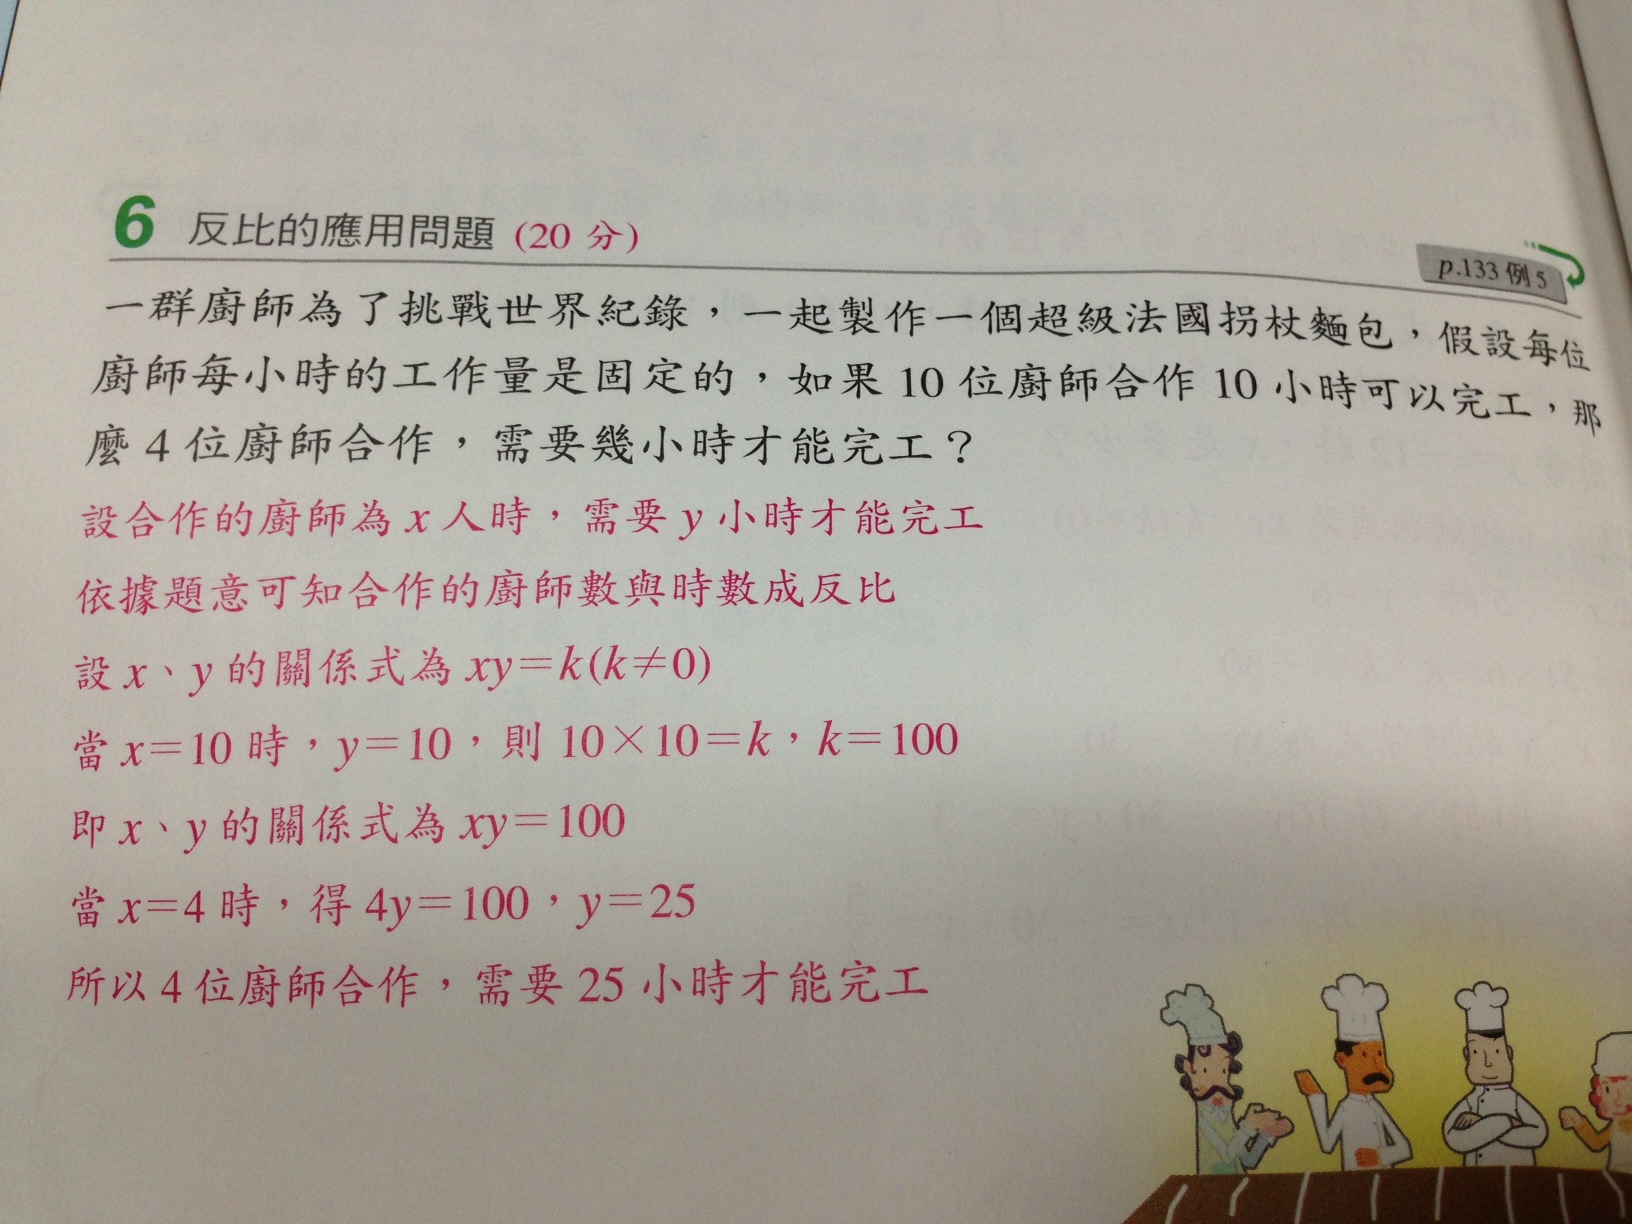 6 反比的應用問題 (20 分)
p.133 例 5
一群廚師為了挑戰世界紀錄，一起製作一個超級法國拐杖麵包，假設每位
廚師每小時的工作量是固定的，如果 10 位廚師合作 10 小時可以完工，那
麼 4 位廚師合作，需要幾小時才能完工？
設合作的廚師為 x 人時，需要 y 小時才能完工
依據題意可知合作的廚師數與時數成反比
設 x、y 的關係式為 xy＝k(k≠0)
當 x＝10 時，y＝10，則 10×10＝k，k＝100
即 x、y 的關係式為 xy＝100
當 x＝4 時，得 4y＝100，y＝25
所以 4 位廚師合作，需要 25 小時才能完工